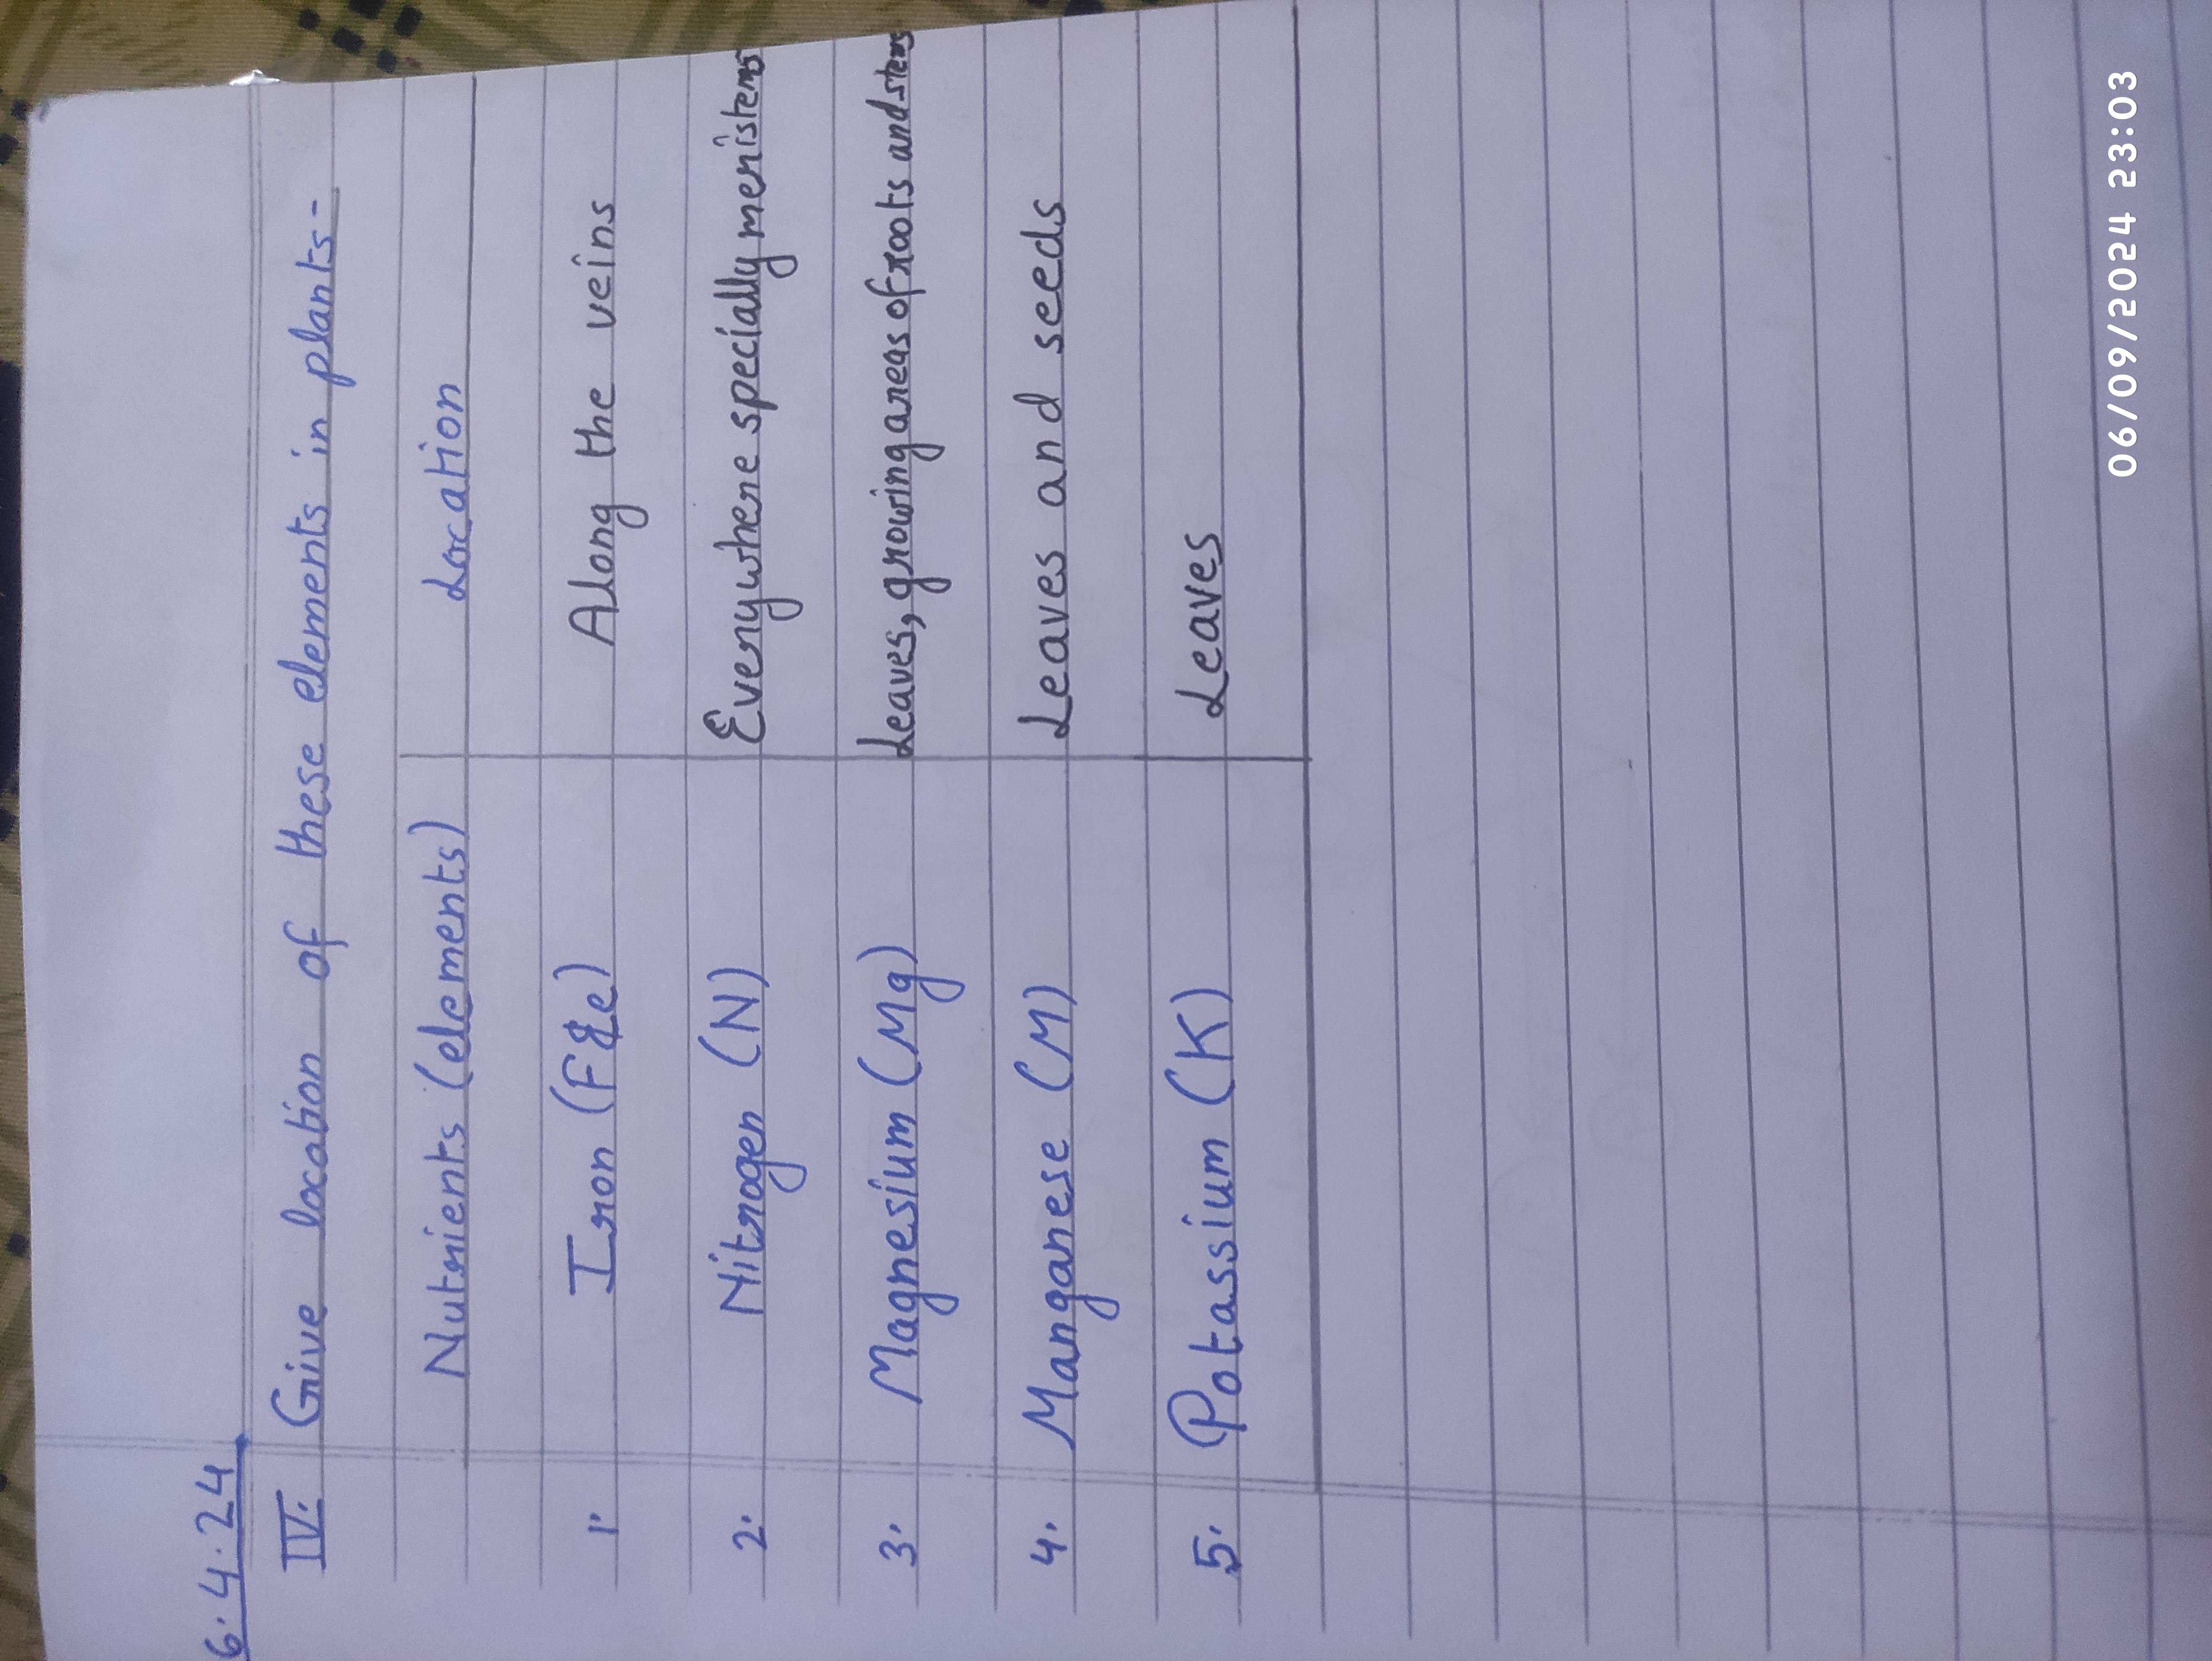 6.4.24
IV. Give location of these elements in plants-
Nutrients (elements) Location
1. Iron (Fe) Along the veins
2. Nitrogen (N) Everywhere specially meristems
3. Magnesium (Mg) Leaves, growing areas of roots and stems
4. Manganese (M) Leaves and seeds
5. Potassium (K) Leaves
06/09/2024 23:03